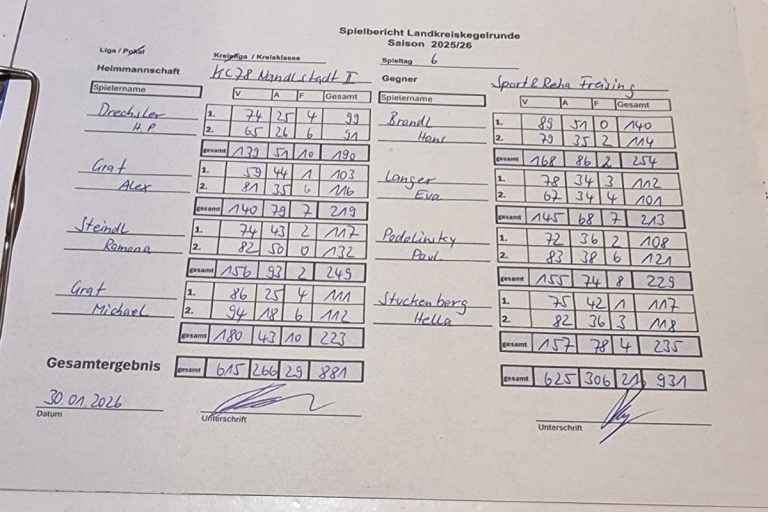 Spielbericht Landkreiskegelrunde
Saison 2025/26
Liga / Pokal Kreisliga / Kreisklasse Spieltag 6
Heimmannschaft KC78 Nandlstadt II Gegner Sport & Reha Freising
Spielername V A F Gesamt Spielername V A F Gesamt
Drechsler 1. 74 25 4 99 Brandl 1. 89 51 0 140
H.P 2. 65 26 6 91 Hans 2. 79 35 2 114
gesamt 139 51 10 190 gesamt 168 86 2 254
Graf 1. 59 44 1 103 Langer 1. 78 34 3 112
Alex 2. 81 35 6 116 Eva 2. 67 34 4 101
gesamt 140 79 7 219 gesamt 145 68 7 213
Steindl 1. 74 43 2 117 Podolinsky 1. 72 36 2 108
Ramona 2. 82 50 0 132 Paul 2. 83 38 6 121
gesamt 156 93 2 249 gesamt 155 74 8 229
Graf 1. 86 25 4 111 Stuckenberg 1. 75 42 1 117
Michael 2. 94 18 6 112 Hella 2. 82 36 3 118
gesamt 180 43 10 223 gesamt 157 78 4 235
Gesamtergebnis gesamt 615 266 29 881 gesamt 625 306 21 931
30.01.2026
Datum Unterschrift Unterschrift